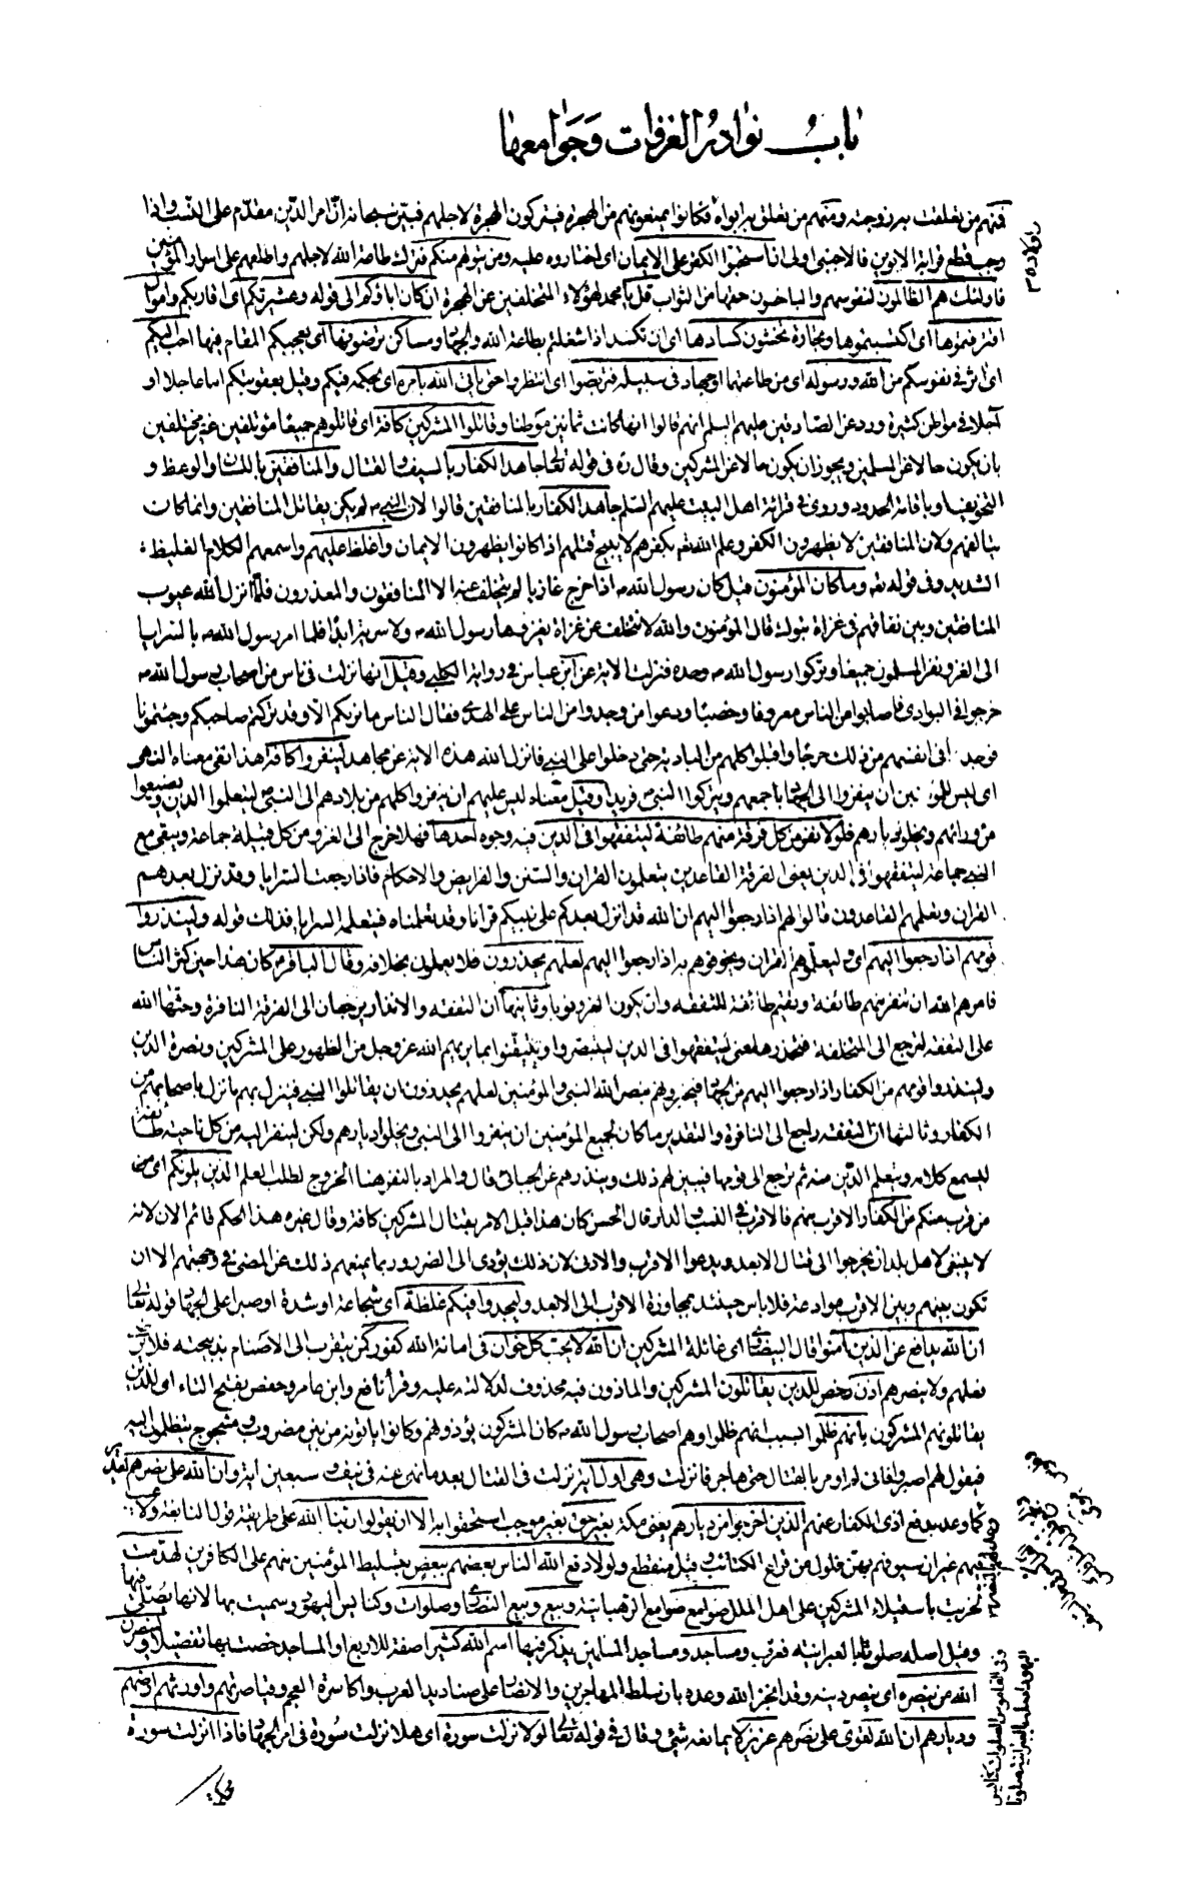 باب نوادر الغزوات وجوامعها
فمنهم من تعلقت به زوجته ومنهم من تعلق به ابواه فكانوا يمنعونهم من الهجرة فيتركون الهجرة لاجلهم فبين سبحانه ان امر الدين مقدم على النسب واذا
وجب قطع قرابة الابوين فالاجنبي اولى ان استحبوا الكفر على الايمان اى اختاروه عليه ومن يتولهم منكم فترك طاعة الله لاجلهم واطلعهم على اسرار المؤمنين
فاولئك هم الظالمون لنفوسهم والباخسون حقها من الثواب قل يا محمد لهؤلاء المتخلفين عن الهجرة ان كان اباؤكم الى قوله وعشيرتكم اى اقاربكم واموال
اقترفتموها اى اكتسبتموها وتجارة تخشون كسادها اى ان تكسد اذا شغلتم بطاعة الله والجهاد ومساكن ترضونها اى يعجبكم المقام فيها احب اليكم
اى اثر فى نفوسكم من الله ورسوله اى من طاعتهما او جهاد فى سبيله فتربصوا اى انتظروا حتى ياتى الله بامره اى بحكمه فيكم وقيل بعقوبتكم اما عاجلا او
آجلا فى مواطن كثيرة ورد عن الصادقين عليهم السلم انهم قالوا انها كانت ثمانين موطنا وقاتلوا المشركين كافة اى قاتلوهم جميعا مؤتلفين غير مختلفين
بان يكون حالا عن المسلمين ويجوز ان يكون حالا عن المشركين وقال ره فى قوله تعالى جاهد الكفار بالسيف والقتال والمنافقين باللسان والوعظ و
التخويف او باقامة الحدود وروى فى قرائة اهل البيت عليهم السلم جاهد الكفار بالمنافقين قالوا لان النبي ص لم يكن يقاتل المنافقين وانما كان
يتالفهم ولان المنافقين لا يظهرون الكفر وعلم الله تعه بكفرهم لا يبيح قتلهم اذا كانوا يظهرون الايمان واغلظ عليهم واسمعهم الكلام الغليظ
الشديد وفى قوله تعه وما كان المؤمنون قيل كان رسول الله ص اذا خرج غازيا لم يتخلف عنه الا المنافقون والمعذرون فلما انزل الله عيوب
المنافقين وبين نفاقهم فى غزاة تبوك قال المؤمنون والله لا نتخلف عن غزاة يغزوها رسول الله ص ولا سرية ابدا فلما امر رسول الله ص بالسرايا
الى الغزو نفر المسلمون جميعا وتركوا رسول الله ص وحده فنزلت الاية عن ابن عباس فى رواية الكلبي وقيل انها نزلت فى ناس من اصحاب رسول الله ص
خرجوا فى البوادى فاصابوا من الناس معروفا وخصبا ودعوا من وجدوا من الناس على الهدى فقال الناس ما نريكم الا وقد تركتم صاحبكم وجئتمونا
فوجدوا فى انفسهم من ذلك حرجا واقبلوا كلهم من البادية حتى دخلوا على النبي فانزل الله هذه الاية عن مجاهد لينفروا كافة هذا نفى معناه النهى
اى ليس للمؤمنين ان ينفروا الى الجهاد باجمعهم ويتركوا النبي ص فريدا وقيل معناه ليس عليهم ان ينفروا كلهم من بلادهم الى النبي ص ليتعلموا الدين ويضيعوا
من ورائهم ويخلو ديارهم فلولا نفر من كل فرقة منهم طائفة ليتفقهوا فى الدين فيه وجوه احدها فهلا خرج الى الغزو من كل قبيلة جماعة ويبقى مع
النبي جماعة ليتفقهوا فى الدين يعنى الفرقة القاعدين يتعلمون القران والسنن والفرايض والاحكام فاذا رجعت السرايا وقد نزل بعدهم
القران وتعلمهم القاعدون قالوا لهم اذا رجعوا اليهم ان الله قد انزل بعدكم على نبيكم قرانا وقد تعلمناه فيتعلمه السرايا فذلك قوله ولينذروا
قومهم اذا رجعوا اليهم اى وليعلموهم القران ويخوفوهم به اذا رجعوا اليهم لعلهم يحذرون فلا يعملون بخلافه وقال الباقر ع كان هذا حين كثر الناس
فامرهم الله ان تنفر منهم طائفة وتقيم طائفة للتفقه وان يكون الغزو نوبا وثانيها ان التفقه والانذار يرجعان الى الفرقة النافرة وحثها الله
على التفقه لترجع الى المتخلفة فتحذرها معنى ليتفقهوا فى الدين ليتبصروا ويتيقنوا بما يريهم الله عز وجل من الظهور على المشركين ونصرة الدين
ولينذروا قومهم من الكفار اذا رجعوا اليهم من الجهاد فيخبرونهم بنصر الله النبي والمؤمنين لعلهم يحذرون ان يقاتلوا النبي فينزل بهم ما نزل باصحابهم من
الكفار وثالثها ان التفقه راجع الى النافرة والتقدير ما كان لجميع المؤمنين ان ينفروا الى النبي ويخلوا ديارهم ولكن لينفر اليه من كل ناحية طائفة
ليسمع كلامه ويتعلم الدين منه ثم ترجع الى قومها فيبين لهم ذلك وينذرهم عن الجبائى قال والمراد بالنفر هنا الخروج لطلب العلم الذين يلونكم اى من
من قرب منكم من الكفار الاقرب منهم فالاقرب فى النسب والدار قال الحسن كان هذا قبل الامر بقتال المشركين كافة وقال غيره هذا الحكم قائم الان لانه
لا ينبغى لاهل بلد ان يخرجوا الى قتال الابعد ويدعوا الاقرب والادنى لان ذلك يؤدى الى الضرر وربما يمنعهم ذلك عن المضى فى وجهتهم الا ان
تكون بينهم وبين الاقرب موادعة فلا باس حينئذ بمجاوزة الاقرب الى الابعد وليجدوا فيكم غلظة اى شجاعة او شدة او صبرا على الجهاد قوله تعالى
ان الله يدافع عن الذين آمنوا قال البيضاوى اى غائلة المشركين ان الله لا يحب كل خوان فى امانة الله كفور كمن يتقرب الى الاصنام بذبيحته فلا يرتضى
فعلهم ولا ينصرهم اذن رخص للذين يقاتلون المشركين والماذون فيه محذوف لدلالته عليه وقرأ نافع وابن عامر وحفص بفتح التاء اى للذين
يقاتلونهم المشركون بانهم ظلموا بسبب انهم ظلموا وهم اصحاب رسول الله ص كان المشركون يؤذونهم وكانوا ياتونه من بين مضروب ومشجوج يتظلمون اليه
فيقول لهم اصبروا فانى لم اومر بالقتال حتى هاجر فانزلت وهى اول اية نزلت فى القتال بعد ما نهى عنه فى نيف وسبعين اية وان الله على نصرهم لقدير
كما وعد بدفع اذى الكفار عنهم الذين اخرجوا من ديارهم يعنى مكة بغير حق بغير موجب استحقوا به الا ان يقولوا ربنا الله على طريقة قول النابغة ولا عيب
فيهم غير ان سيوفهم بهن فلول من قراع الكتائب وقيل منقطع ولولا دفع الله الناس بعضهم ببعض بتسليط المؤمنين منهم على الكافرين لهدمت
لخربت باستيلاء المشركين على اهل الملل صوامع صوامع الرهبانية وبيع وبيع النصارى وصلوات وكنايس اليهود وسميت بها لانها يصلى فيها
وقيل اصله صلوتا بالعبرانية فعرب ومساجد ومساجد المسلمين يذكر فيها اسم الله كثيرا صفة للاربع او المساجد خصت بها تفضيلا ولينصرن
الله من ينصره اى ينصر دينه وقد انجز الله وعده بان سلط المهاجرين والانصار على صناديد العرب واكاسرة العجم وقياصرتهم واورثهم ارضهم
وديارهم ان الله لقوى على نصرهم عزيز لا يمانعه شئ وقال فى قوله تعالى لولا نزلت سورة اى هلا نزلت سورة فى امر الجهاد فاذا انزلت سورة
محكمة
وفى القاموس الصلوات كنايس
اليهود اصله بالعبرانية صلوتا